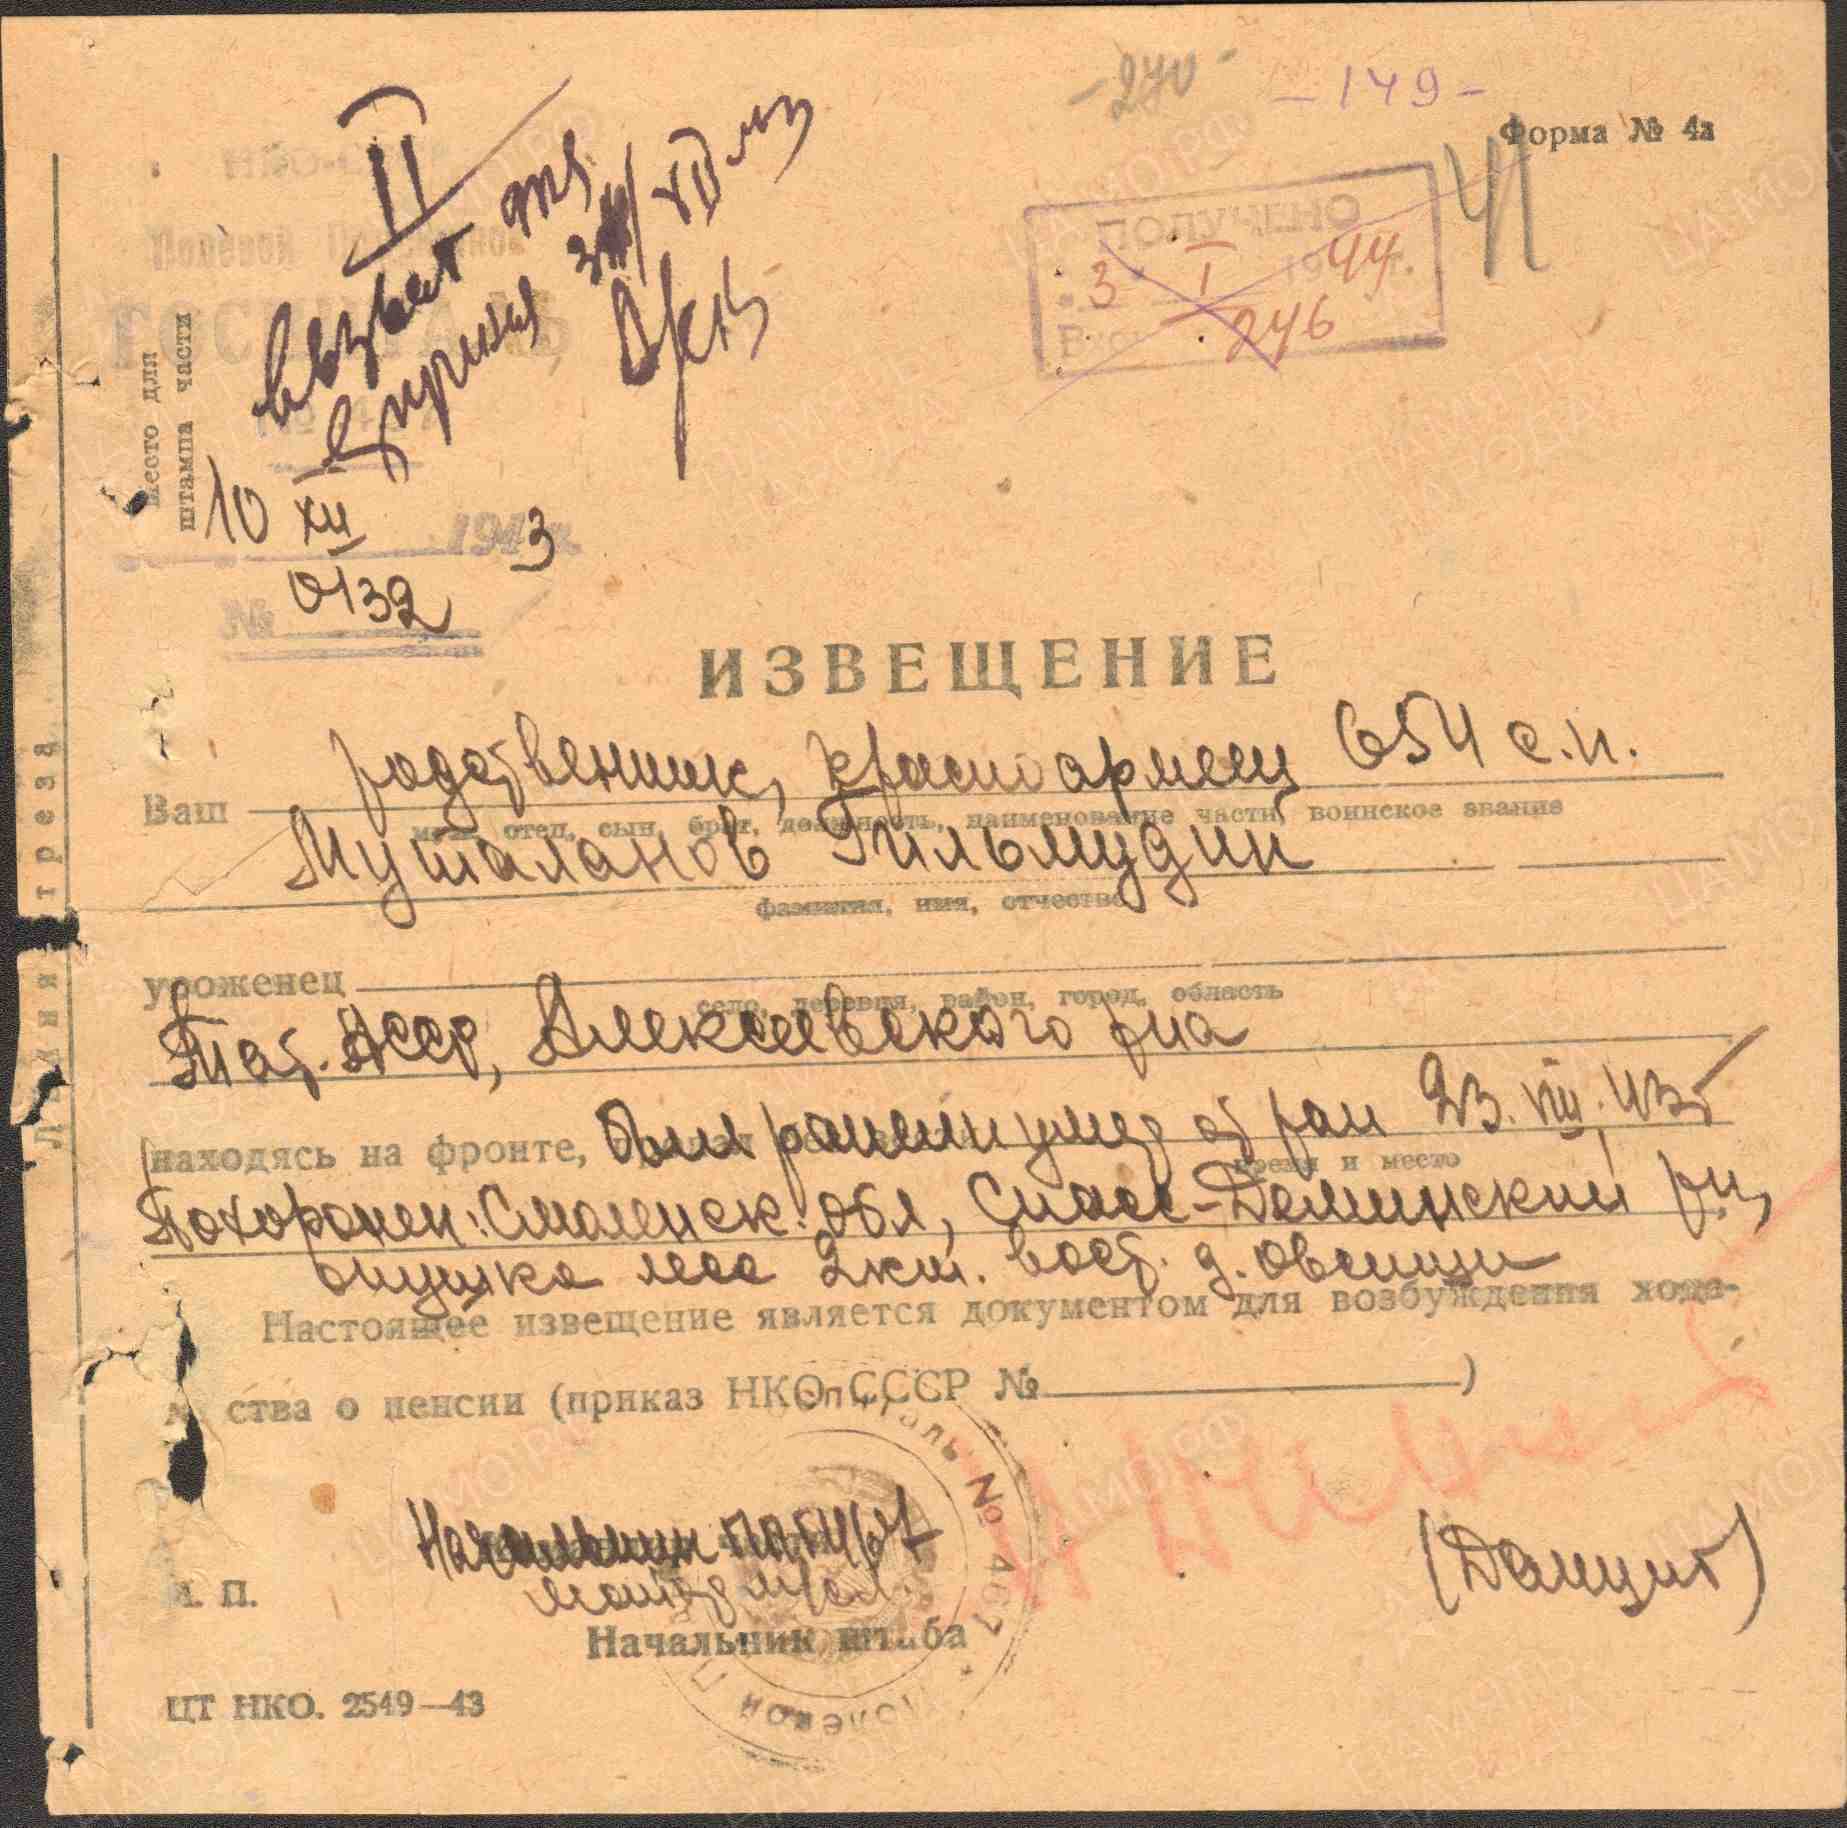 -270-
-149-
Форма № 4а
II
ПОЛУЧЕНО
3 I 1944 г.
246
41
НКО-С
Полевой
ГОСПИТАЛЬ
Место для
штампа части
10 XII 1943
№ 0132
ИЗВЕЩЕНИЕ
Ваш родственник, красноармеец 654 с.п.
муж, отец, сын, брат, должность, наименование части, воинское звание
Муталапов Гильмудин
фамилия, имя, отчество
уроженец
село, деревня, район, город, область
Тат. АССР, Алексеевского р-на
находясь на фронте, был ранен и умер от ран 23.VIII.43г
время и место
Похоронен: Смоленск. обл, Спасс-Деминский р-н,
опушка леса 2км. вост. д.
Настоящее извещение является документом для возбуждения хода-
ства о пенсии (приказ НКО СССР № )
Начальник
(Данциг)
М. П.
Начальник штаба
ЦТ НКО. 2549—43
Линия отреза
Полевой госпиталь № 4667